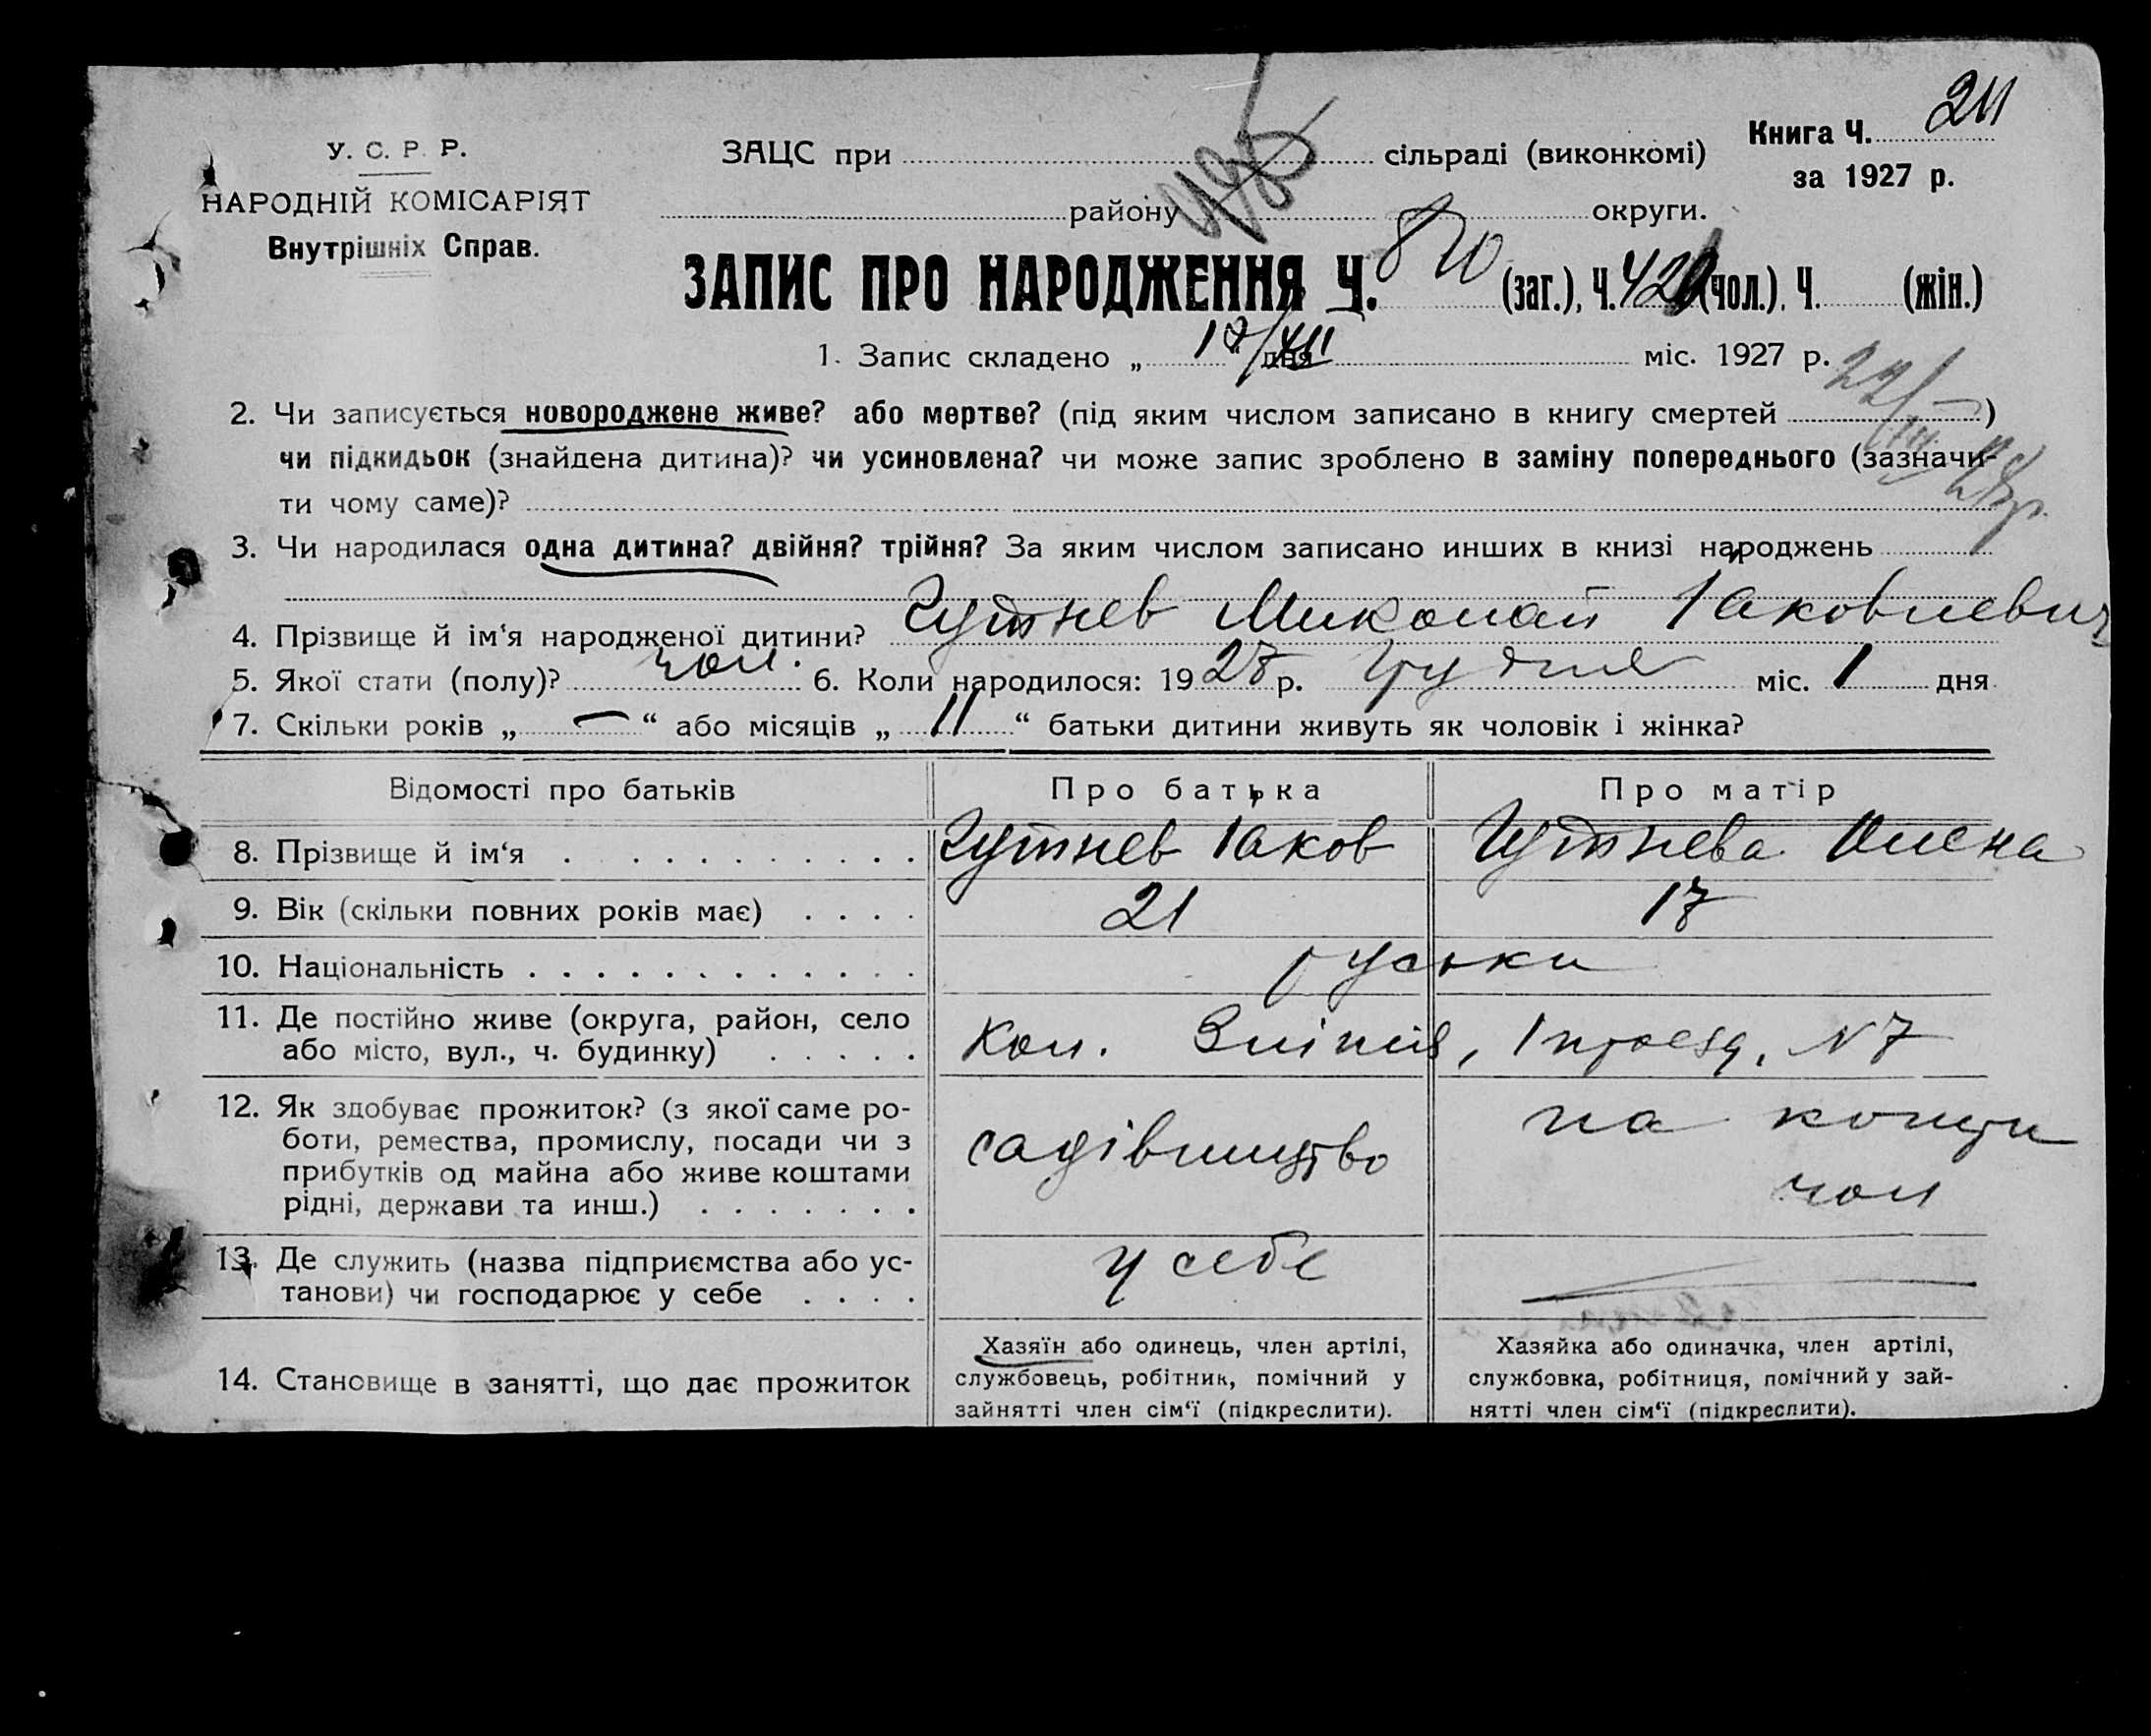 Книга Ч. 211
за 1927 р.
У. С. Р. Р.
НАРОДНІЙ КОМІСАРІЯТ
Внутрішніх Справ.
ЗАЦС при сільраді (виконкомі)
району округи.
ЗАПИС ПРО НАРОДЖЕННЯ Ч. 810 (заг.), Ч. 420 (чол.), Ч. (жін.)
1. Запис складено „ 17/XII “ дня міс. 1927 р.
2. Чи записується новороджене живе? або мертве? (під яким числом записано в книгу смертей )
чи підкидьок (знайдена дитина)? чи усиновлена? чи може запис зроблено в заміну попереднього (зазначи-
ти чому саме)?
3. Чи народилася одна дитина? двійня? трійня? За яким числом записано инших в книзі народжень
4. Прізвище й ім‘я народженої дитини? Гутнев Миколай Іаковлевич
5. Якої стати (полу)? чол. 6. Коли народилося: 1927 р. Грудня міс. 1 дня
7. Скільки років „ — “ або місяців „ 11 “ батьки дитини живуть як чоловік і жінка?
Відомості про батьків Про батька Про матір
8. Прізвище й ім‘я Гутнев Іаков Гутнева Олена
9. Вік (скільки повних років має) 21 17
10. Національність руськи
11. Де постійно живе (округа, район, село
або місто, вул., ч. будинку) Кол. №7
12. Як здобуває прожиток? (з якої саме ро-
боти, ремества, промислу, посади чи з
прибутків од майна або живе коштами
рідні, держави та инш.) садівництво на кошти
чол
13. Де служить (назва підприємства або ус-
танови) чи господарює у себе у себе
14. Становище в занятті, що дає прожиток
Хазяїн або одинець, член артілі,
службовець, робітник, помічний у
зайнятті член сім‘ї (підкреслити).
Хазяйка або одиначка, член артілі,
службовка, робітниця, помічний у зай-
нятті член сім‘ї (підкреслити).